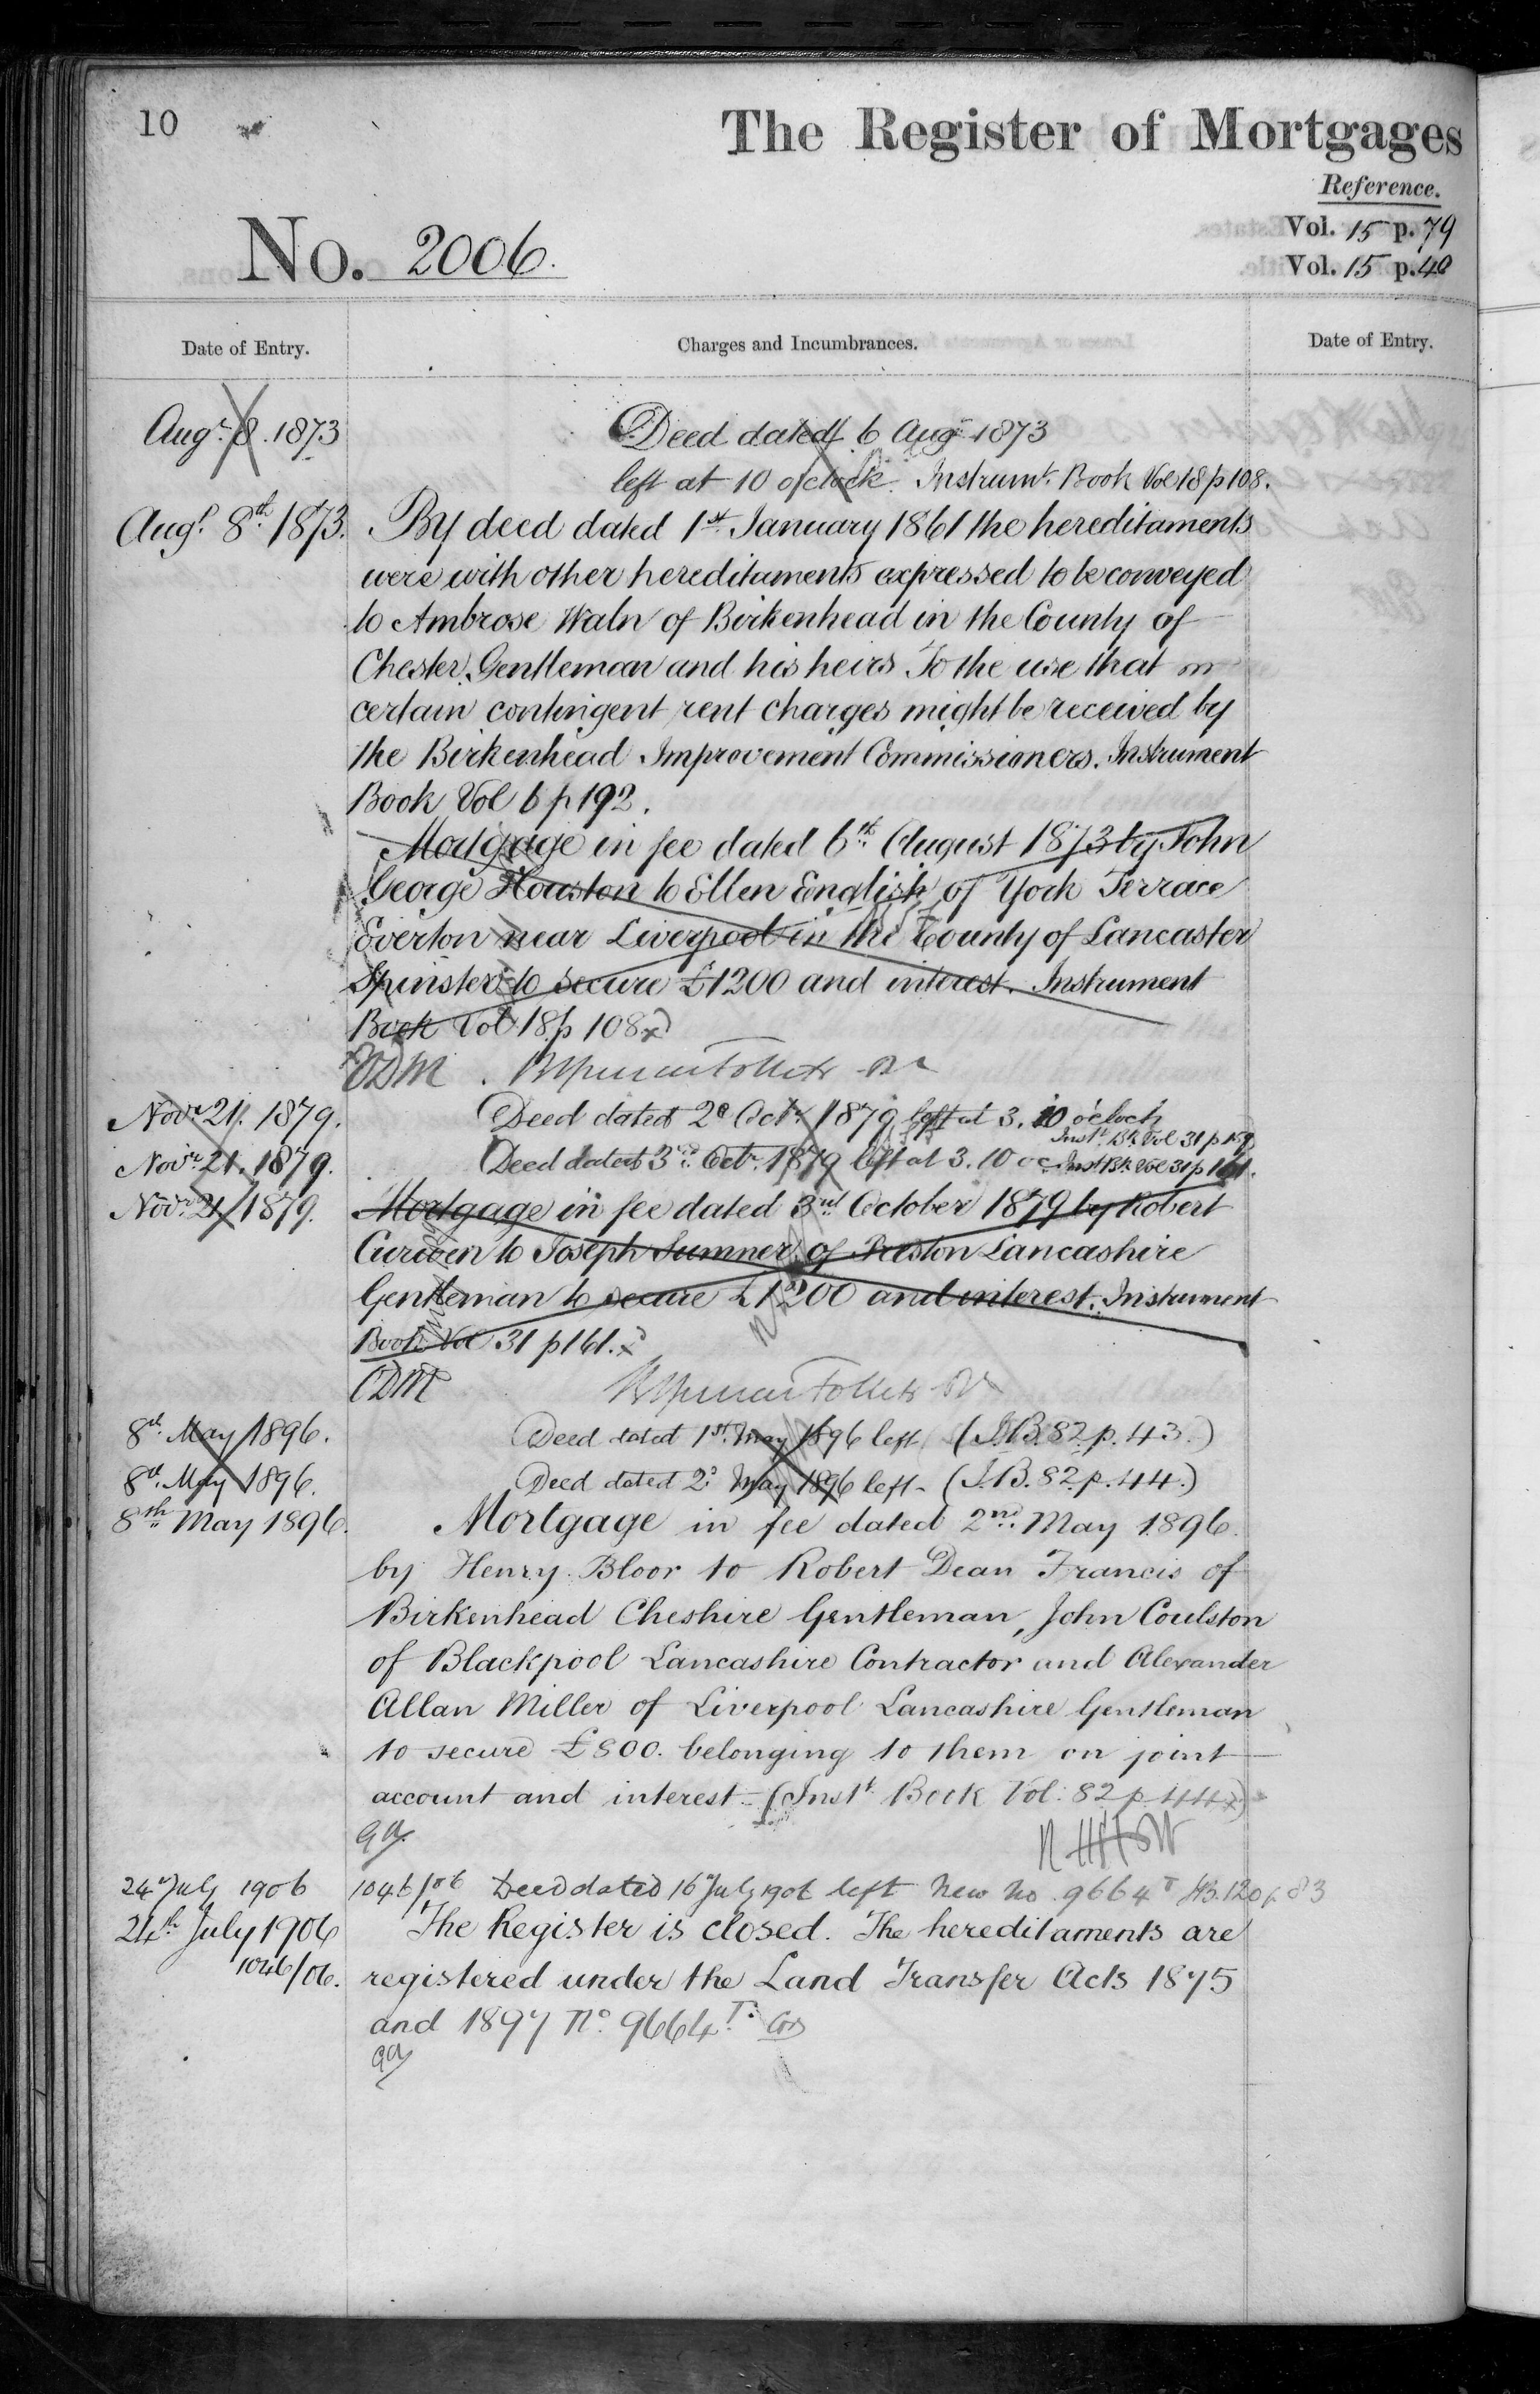 10
The Register of Mortgages
Reference.
No. 2006.
Vol. 15 p. 79
Vol. 15 p. 40
Date of Entry.
Charges and Incumbrances.
Date of Entry.
Augt. 8. 1873
Deed dated 6 Augt 1873
left at 10 o'clock. Instrumt. Book Vol 18 p 108.
Augt. 8th. 1873.
By deed dated 1st. January 1861 the hereditaments
were with other hereditaments expressed to be conveyed
to Ambrose Waln of Birkenhead in the County of
Chester, Gentleman and his heirs To the use that in
certain contingent rent charges might be received by
the Birkenhead Improvement Commissioners. Instrument
Book Vol 6 p 192.
Mortgage in fee dated 6th. August 1873 by John
George Houston to Ellen English of York Terrace
Everton near Liverpool in the County of Lancaster
Spinster to secure £1200 and interest. Instrument
Book Vol 18 p 108.
Novr. 21. 1879.
Deed dated 2d Octr. 1879 left at 3.10 o'clock
Inst. Bk. Vol 31 p
Novr. 21. 1879.
Deed dated 3rd. Octr. 1879 left at 3.10 oc. Inst Bk. Vol 31 p 161.
Novr. 21 1879.
Mortgage in fee dated 3rd. October 1879 by Robert
Curwen to Joseph Sumner of Preston Lancashire
Gentleman to secure £1200 and interest. Instrument
Book Vol 31 p 161.
8th. May 1896.
Deed dated 1st. May 1896 left (I.B. 82. p. 43.)
8th. May 1896.
Deed dated 2d. May 1896 left - (I.B. 82. p. 44.)
8th May 1896.
Mortgage in fee dated 2nd. May 1896.
by Henry Bloor to Robert Dean Francis of
Birkenhead Cheshire Gentleman, John Coulston
of Blackpool Lancashire Contractor and Alexander
Allan Miller of Liverpool Lancashire Gentleman
to secure £800. belonging to them on joint
account and interest - (Instt. Book Vol: 82 p. 44)
24 July 1906
1046/06 Deed dated 16 July 1906 left New No. 9664 T I.B. 120 p. 83
24th July 1906
1046/06.
The Register is closed. The hereditaments are
registered under the Land Transfer Acts 1875
and 1897 No. 9664 T.